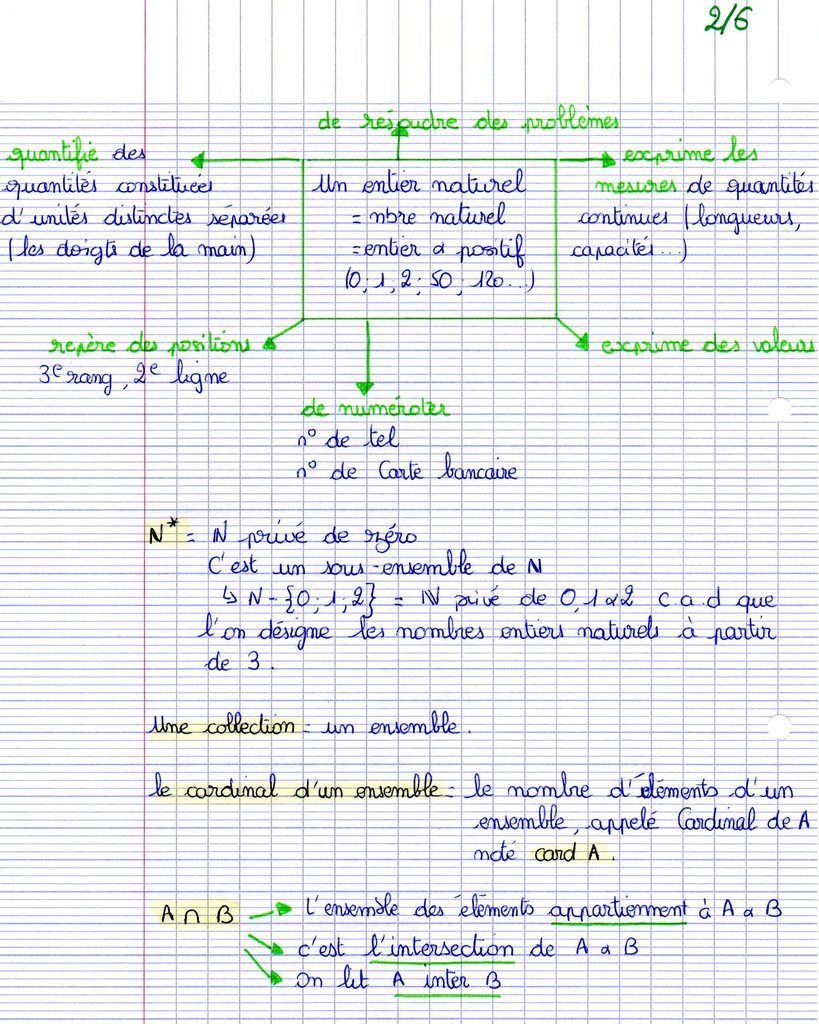 2/6
de résoudre des problèmes
quantifie des
quantités constituées
d'unités distinctes séparées
(les doigts de la main)
Un entier naturel
= nbre naturel
= entier & positif
(0; 1; 2; 50; 120...)
exprime les
mesures de quantités
continues (longueurs,
capacités...)
repère des positions
3e rang, 2e ligne
exprime des valeurs
de numéroter
n° de tel
n° de Carte bancaire
N* = N privé de zéro
C'est un sous-ensemble de N
↳ N - {0; 1; 2} = N privé de 0, 1 & 2 c.a.d que
l'on désigne les nombres entiers naturels à partir
de 3.
Une collection = un ensemble.
le cardinal d'un ensemble = le nombre d'éléments d'un
ensemble, appelé Cardinal de A
noté card A.
A ∩ B → L'ensemble des éléments appartiennent à A & B
→ c'est l'intersection de A & B
→ On lit A inter B